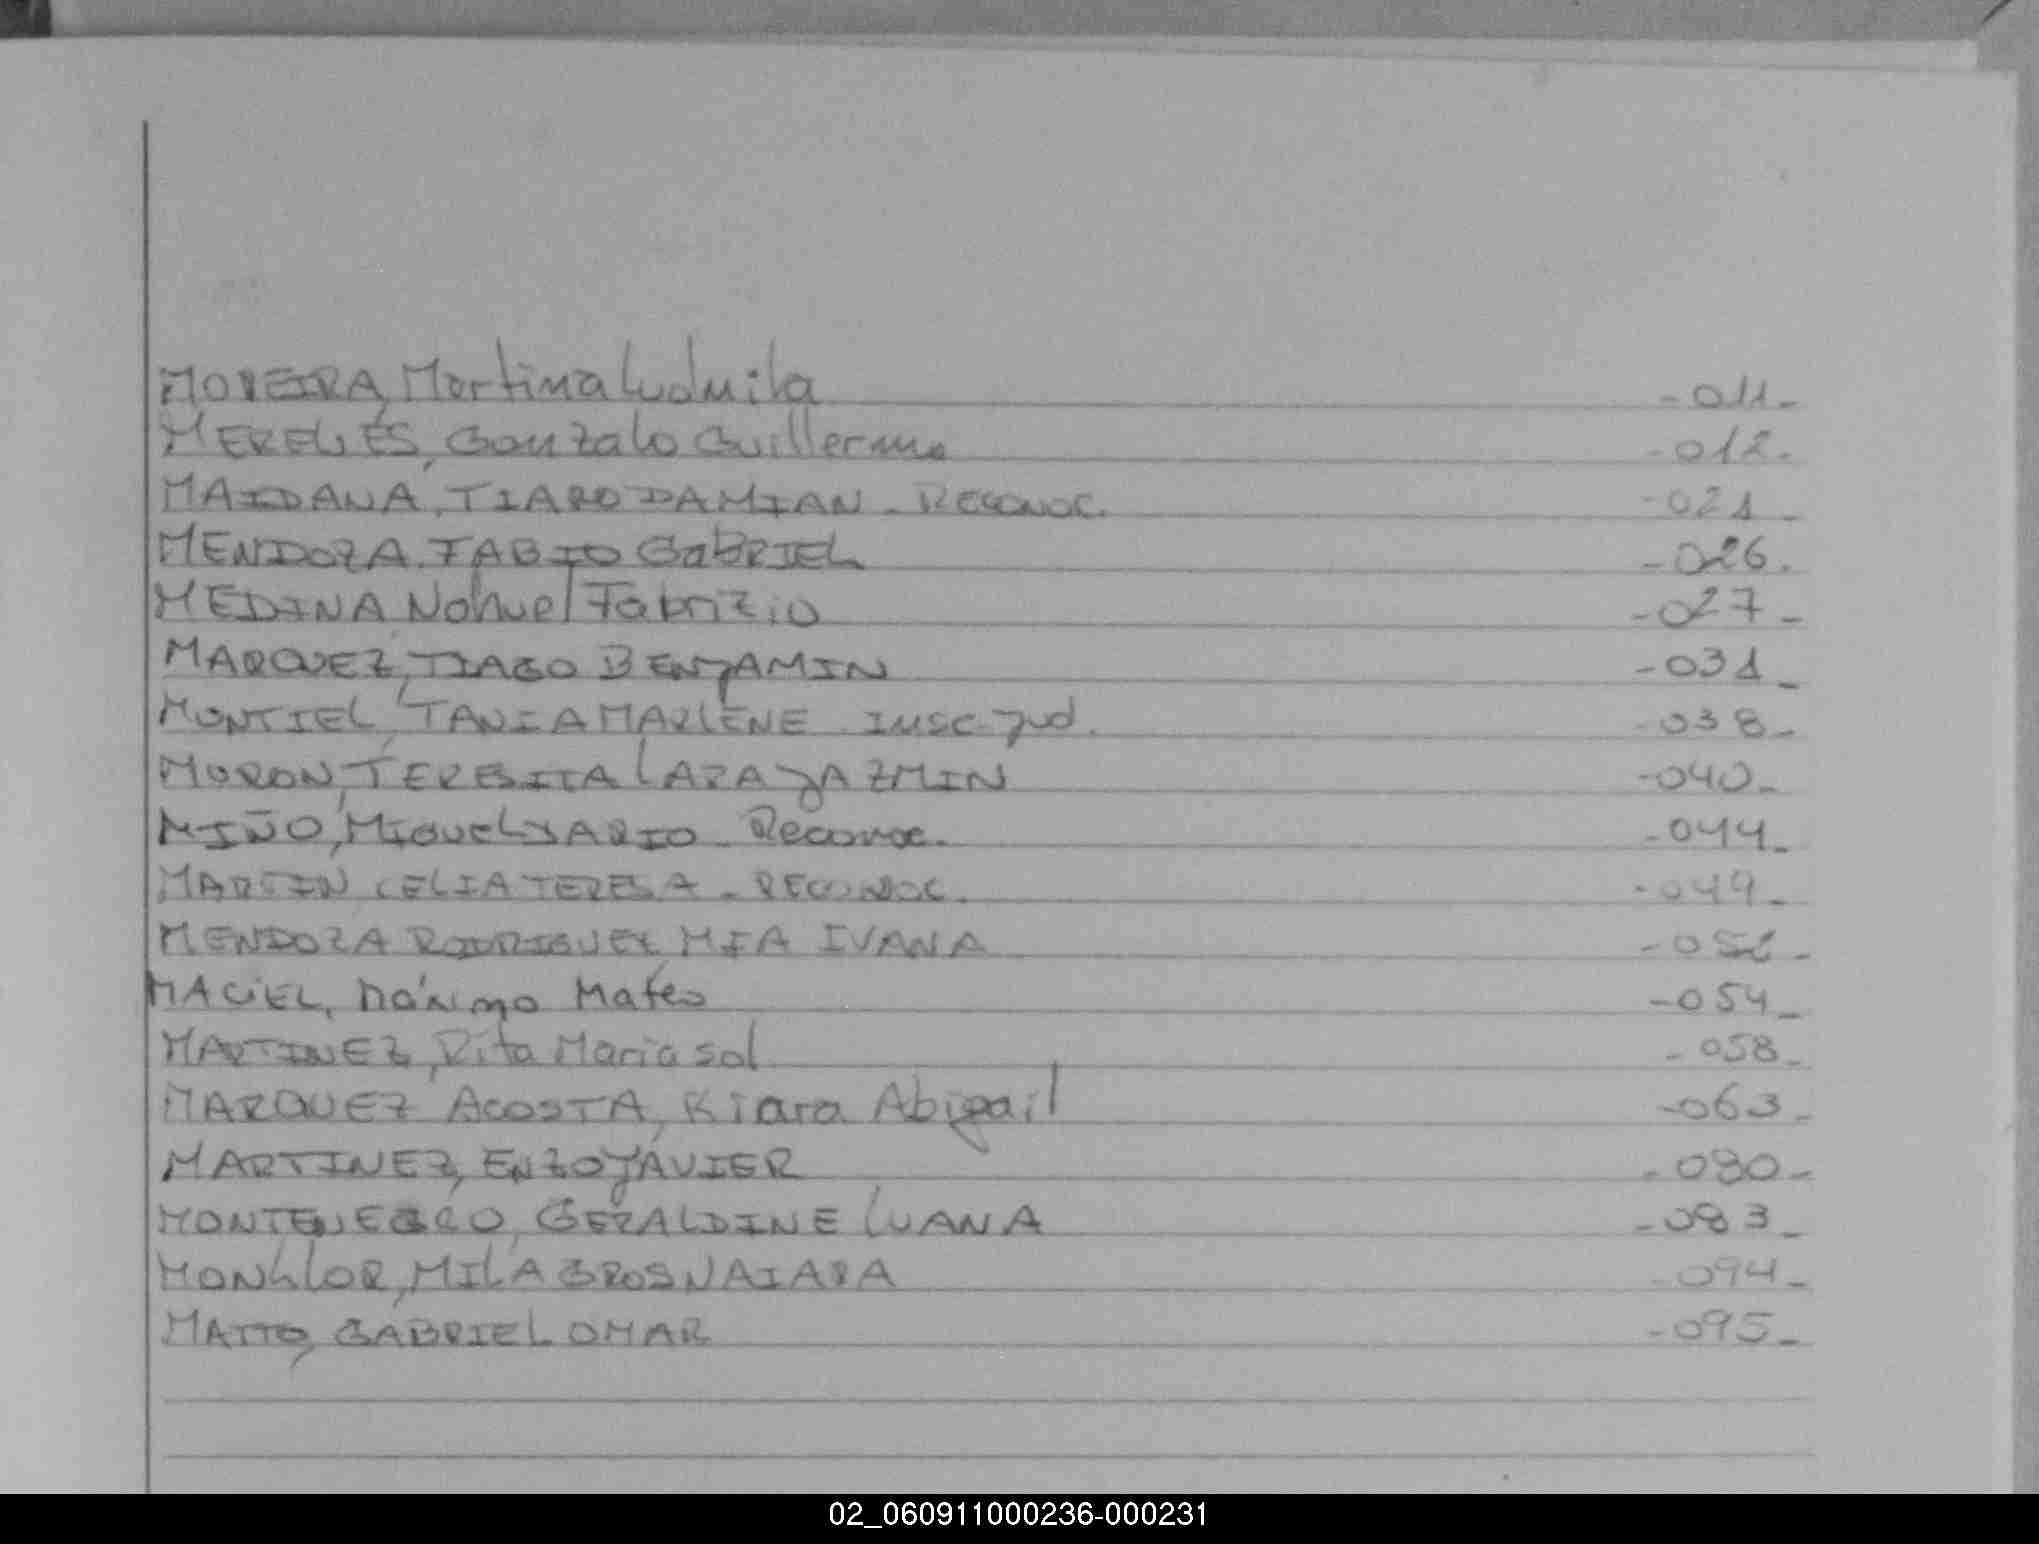 MOREIRA, Martina Ludmila -011-
MERELES, Gonzalo Guillermo -012-
MAIDANA, TIAGO DAMIAN - RECONOC. -021-
MENDOZA, FABIO GaBRIEL -026.
MEDINA Nahuel Fabrizio -027-
MARQUEZ, TIAGO BENJAMIN -031-
MONTIEL, TANIA MARLENE INSC. Jud. -038-
MORON, TERESITA LARA JAZMIN -040-
MIÑO, MIGUEL DARIO - Reconoc. -044-
MARTIN CELIA TERESA - RECONOC. -049-
MENDOZA RODRIGUEZ MIA IVANA
MACIEL, Máximo Mateo -054-
MARTINEZ, Rita Maria sol -058-
MARQUEZ ACOSTA, Kiara Abigail -063-
MARTINEZ, ENZO JAVIER -080-
MONTENEGRO, GERALDINE LUANA -083-
MONLLOR, MILAGROS NAIARA -094-
MATTO, GABRIEL OMAR -095-
02_060911000236-000231